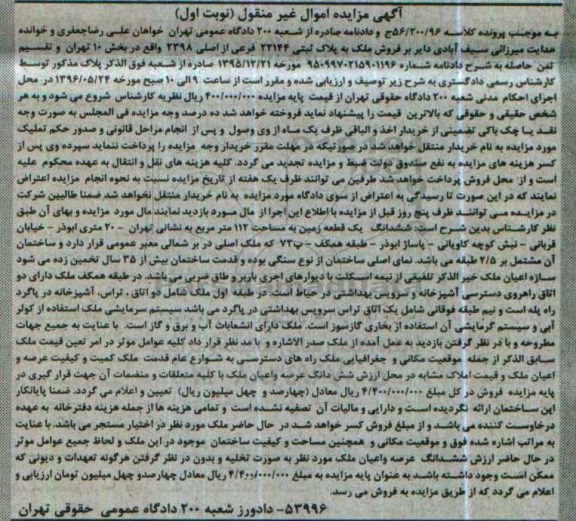 آگهی مزایده اموال غیر منقول (نوبت اول)
به موجب پرونده کلاسه ۵۶/۲۰۰/۹۶ج و دادنامه صادره از شعبه ۲۰۰ دادگاه عمومی تهران خواهان علی رضاجعفری و خوانده
هدایت میرزائی سیف آبادی دایر بر فروش ملک به پلاک ثبتی ۲۲۱۴۴ فرعی از اصلی ۲۳۹۸ واقع در بخش ۱۰ تهران و تقسیم
ثمن حاصله به شرح دادنامه شماره ۹۵۰۹۹۷۰۲۱۵۹۰۱۱۹۶ مورخه ۱۳۹۵/۱۲/۲۱ صادره از شعبه فوق الذکر پلاک مذکور توسط
کارشناس رسمی دادگستری به شرح زیر توصیف و ارزیابی شده و مقرر است از ساعت ۹ الی ۱۰ صبح مورخه ۱۳۹۶/۰۵/۲۴ در محل
اجرای احکام مدنی شعبه ۲۰۰ دادگاه حقوقی تهران از قیمت پایه مزایده ۴۰۰/۰۰۰/۰۰۰ ریال نظریه کارشناس شروع می شود و به هر
شخص حقیقی و حقوقی که بالاترین قیمت را پیشنهاد نماید فروخته خواهد شد ده درصد وجه مزایده فی المجلس به صورت وجه
نقد یا چک بانکی تضمینی از خریدار اخذ و الباقی ظرف یک ماه از وی وصول و پس از انجام مراحل قانونی و صدور حکم تملیک
مورد مزایده به نام خریدار منتقل خواهد شد در صورتیکه در مهلت مقرر خریدار وجه مزایده را پرداخت ننماید سپرده وی پس از
کسر هزینه های مزایده به نفع صندوق دولت ضبط و مزایده تجدید می گردد. کلیه هزینه های نقل و انتقال به عهده محکوم علیه
است و از محل فروش پرداخت خواهد شد طرفین می توانند ظرف یک هفته از تاریخ مزایده نسبت به نحوه انجام مزایده اعتراض
نمایند که در این صورت تا رسیدگی به اعتراض از سوی دادگاه مورد مزایده به نام خریدار منتقل نخواهد شد ضمنا طالبین شرکت
در مزایده می توانند ظرف پنج روز قبل از مزایده با اطلاع این اجرا از مال مورد بازدید نمایند مال مورد مزایده و بهای آن طبق
نظر کارشناس بدین شرح است: ششدانگ یک قطعه زمین به مساحت ۱۱۲ متر مربع به نشانی تهران - ۲۰ متری ابوذر - خیابان
قربانی - نبش کوچه کاویانی - پاساژ ابوذر - طبقه همکف - پ۷۳ که ملک اصلی در بر شمالی معبر عمومی قرار دارد و ساختمان
آن مشتمل بر ۲/۵ طبقه می باشد. نمای اصلی ساختمان از نوع سنگی بوده و قدمت ساختمان بیش از ۳۵ سال تخمین زده می شود
سازه اعیان ملک خیر الذکر تلفیقی از نیمه اسکلت با دیوارهای اجری باربر و طاق ضربی می باشد. در طبقه همکف ملک دارای دو
اتاق راهروی دسترسی آشپزخانه و سرویس بهداشتی در حیاط است. در طبقه اول ملک شامل دو اتاق، تراس، آشپزخانه در پاگرد
راه پله است و نیم طبقه فوقانی شامل یک اتاق تراس سرویس بهداشتی در پاگرد می باشد سیستم سرمایشی ملک استفاده از کولر
آبی و سیستم گرمایشی آن استفاده از بخاری گازسوز است. ملک دارای انشعابات آب و برق و گاز است. با عنایت به جمیع جهات
مطروحه و با در نظر گرفتن بازدید به عمل آمده از ملک صدر الاشاره و با مد نظر قرار داد کلیه عوامل موثر در امر تعین قیمت ملک
سابق الذکر از جمله موقعیت مکانی و جغرافیایی ملک راه های دسترسی به شوارع عام قدمت ملک کمیت و کیفیت عرصه و
اعیان ملک و قیمت املاک مشابه در محل ارزش شش دانگ عرصه واعیان ملک با کلیه متعلقات و منضمات آن جهت قرار گیری در
پایه مزایده فروش در کل مبلغ ۴/۴۰۰/۰۰۰/۰۰۰ ریال معادل (چهارصد و چهل میلیون ریال) تعیین و اعلام می گردد. ضمنا پایانکار
این ساختمان ارائه نگردیده است و دارایی و مالیات آن تصفیه نشده است و تمامی هزینه ها از جمله هزینه دفترخانه به عهده
درخواست کننده می باشد. و از مبلغ فروش کسر خواهد شد در حال حاضر ملک مورد نظر در اختیار مستجر می باشد. با عنایت
به مراتب اشاره شده فوق و موقعیت مکانی و همچنین مساحت و کیفیت ساختمان موجود در این ملک و لحاظ جمیع عوامل موثر
در حال حاضر ارزش ششدانگ عرصه واعیان ملک مورد نظر به صورت تخلیه و بدون در نظر گرفتن هرگونه تعهدات و دیونی که
ممکن است وجود داشته باشد به عنوان پایه مزایده به مبلغ ۴/۴۰۰/۰۰۰/۰۰۰ ریال معادل چهارصدو چهل میلیون تومان ارزیابی و
اعلام می گردد که از طریق مزایده به فروش می رسد.
۵۳۹۹۶- دادورز شعبه ۲۰۰ دادگاه عمومی حقوقی تهران